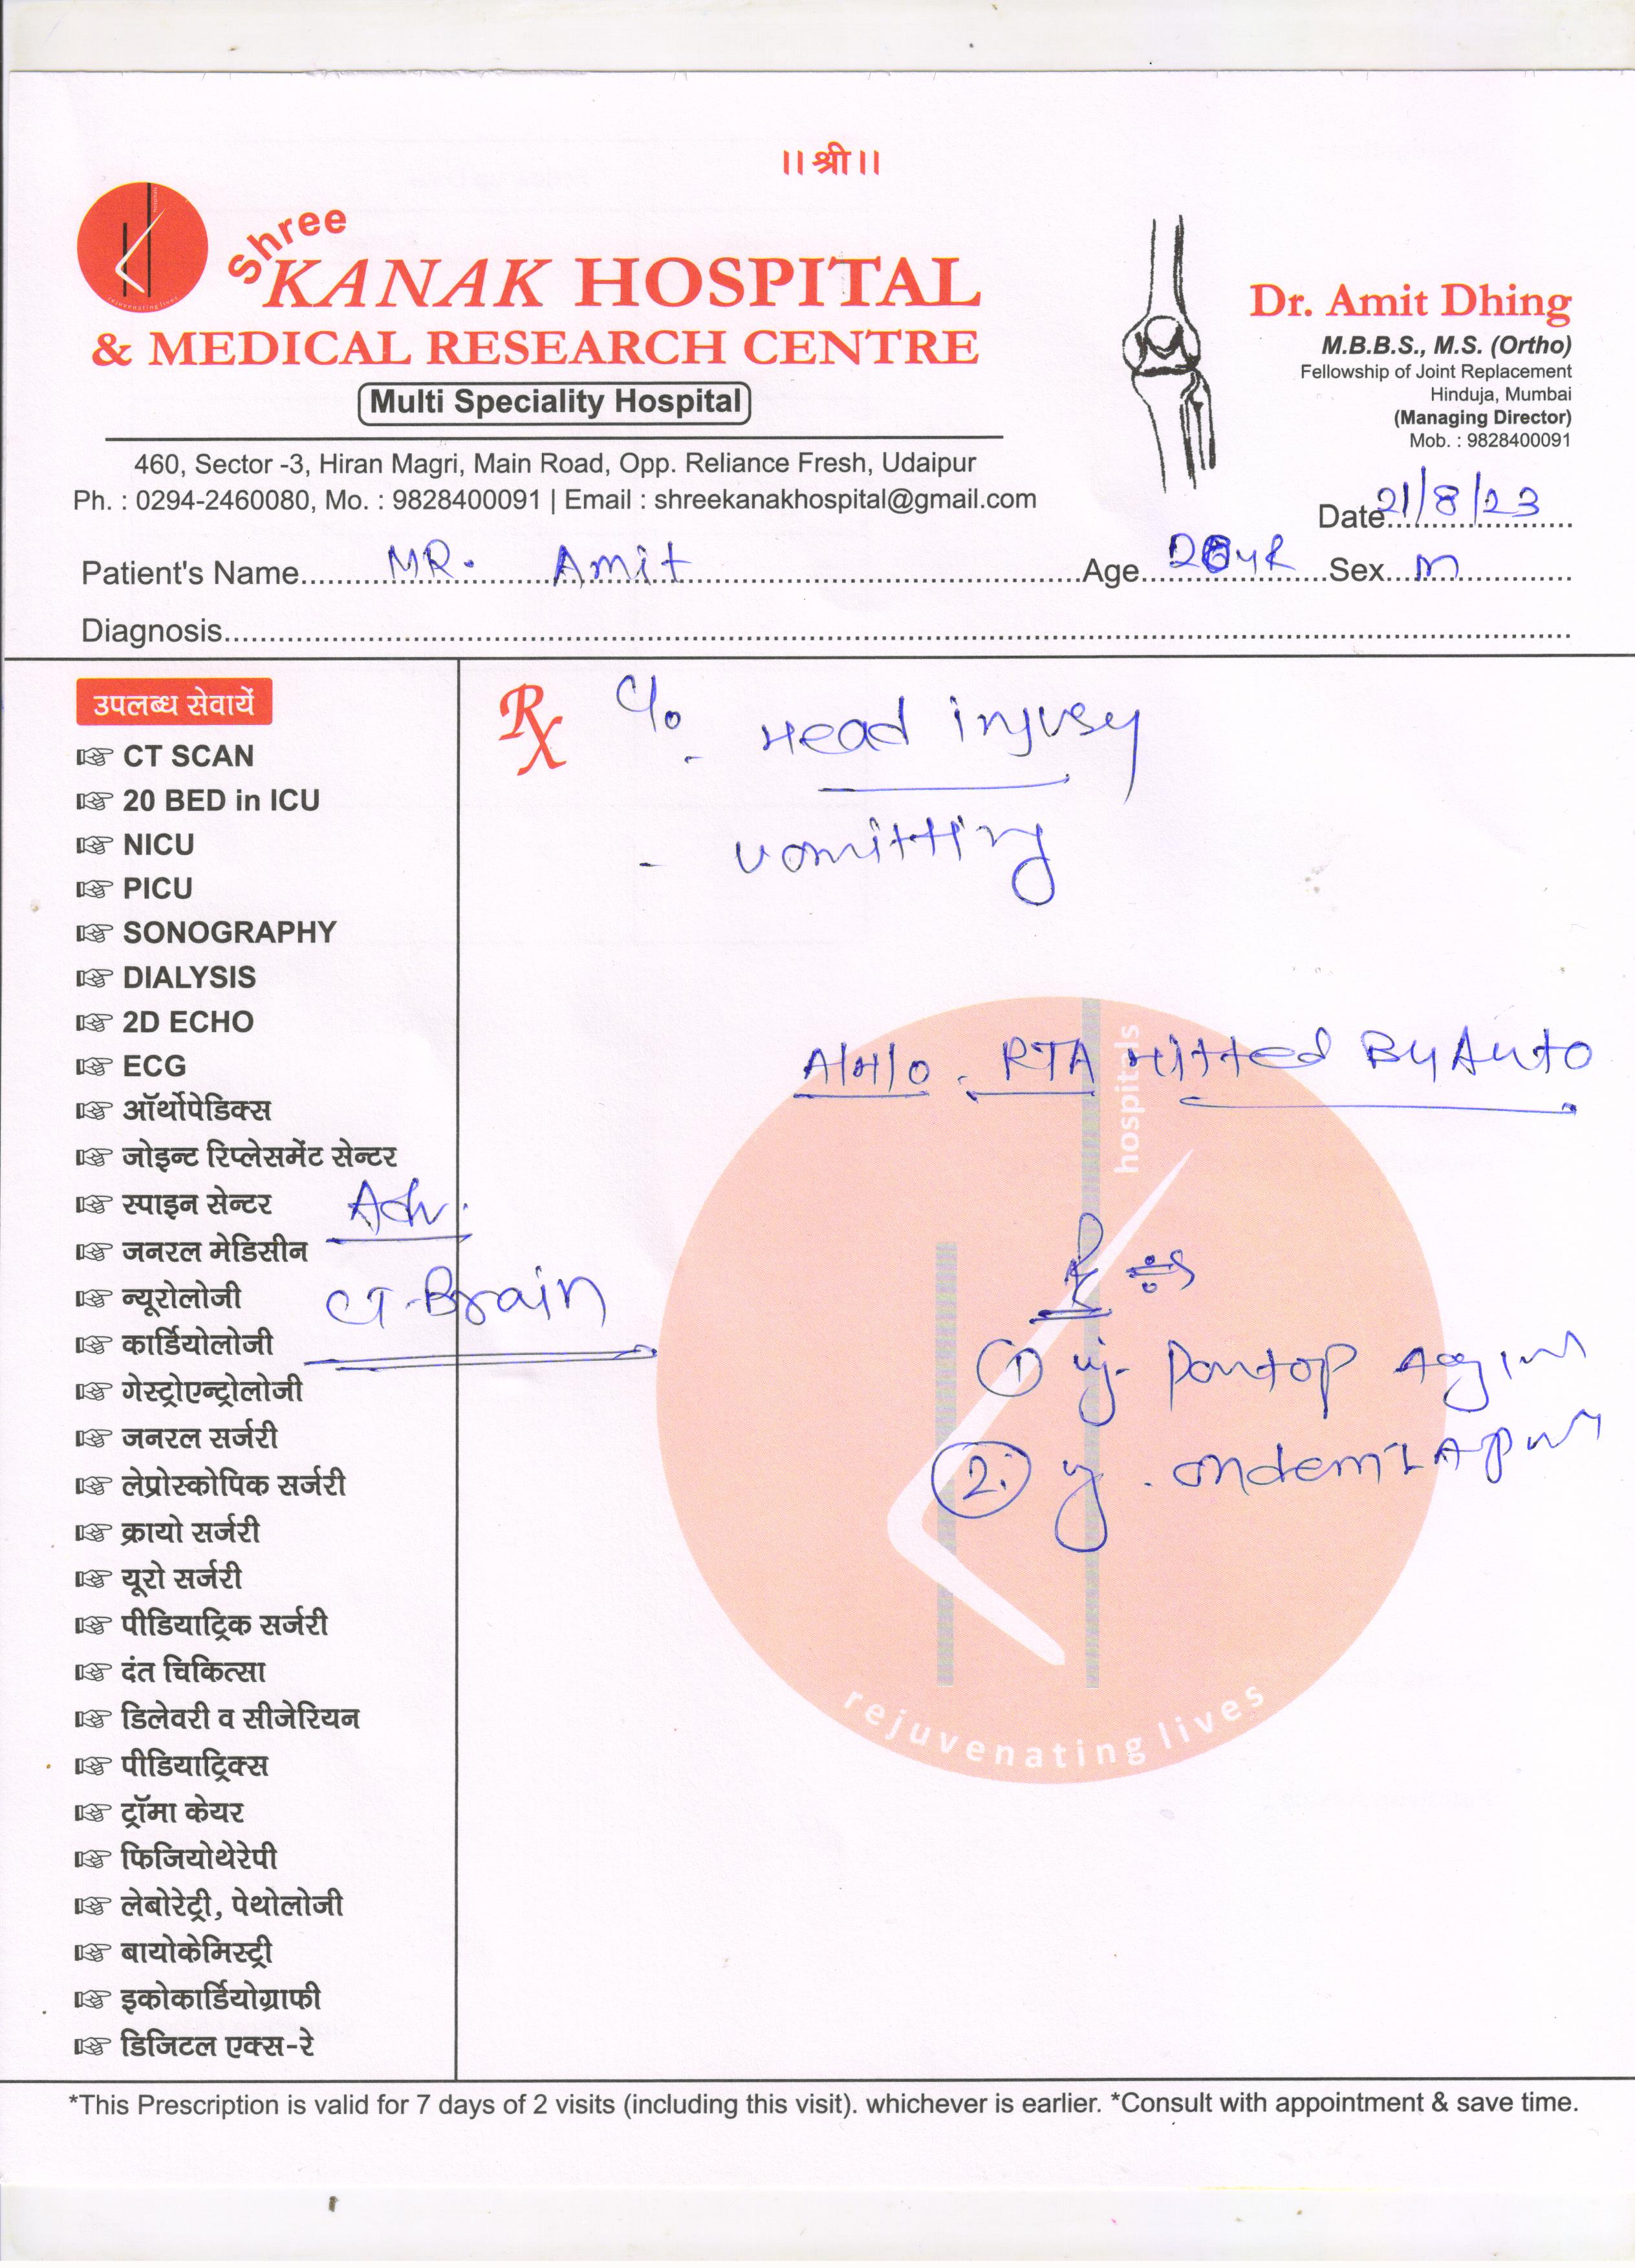 ।। श्री ।।
Shree
KANAK HOSPITAL
& MEDICAL RESEARCH CENTRE
Multi Speciality Hospital
460, Sector -3, Hiran Magri, Main Road, Opp. Reliance Fresh, Udaipur
Ph. : 0294-2460080, Mo. : 9828400091 | Email : shreekanakhospital@gmail.com
Dr. Amit Dhing
M.B.B.S., M.S. (Ortho)
Fellowship of Joint Replacement
Hinduja, Mumbai
(Managing Director)
Mob. : 9828400091
Date 21/8/23
Patient's Name MR. Amit Age Sex M
Diagnosis
उपलब्ध सेवायें
CT SCAN
20 BED in ICU
NICU
PICU
SONOGRAPHY
DIALYSIS
2D ECHO
ECG
ऑर्थोपेडिक्स
जोइन्ट रिप्लेसमेंट सेन्टर
स्पाइन सेन्टर
जनरल मेडिसीन
न्यूरोलोजी
कार्डियोलोजी
गेस्ट्रोएन्ट्रोलोजी
जनरल सर्जरी
लेप्रोस्कोपिक सर्जरी
क्रायो सर्जरी
यूरो सर्जरी
पीडियाट्रिक सर्जरी
दंत चिकित्सा
डिलेवरी व सीजेरियन
पीडियाट्रिक्स
ट्रॉमा केयर
फिजियोथेरेपी
लेबोरेट्री, पेथोलोजी
बायोकेमिस्ट्री
इकोकार्डियोग्राफी
डिजिटल एक्स-रे
Rx C/o
- Head injury
- vomitting
A/H/O. RTA Hitted By Auto
Adv.
CT-Brain
① inj. Pantop
②
hospitals
rejuvenating lives
*This Prescription is valid for 7 days of 2 visits (including this visit). whichever is earlier. *Consult with appointment & save time.